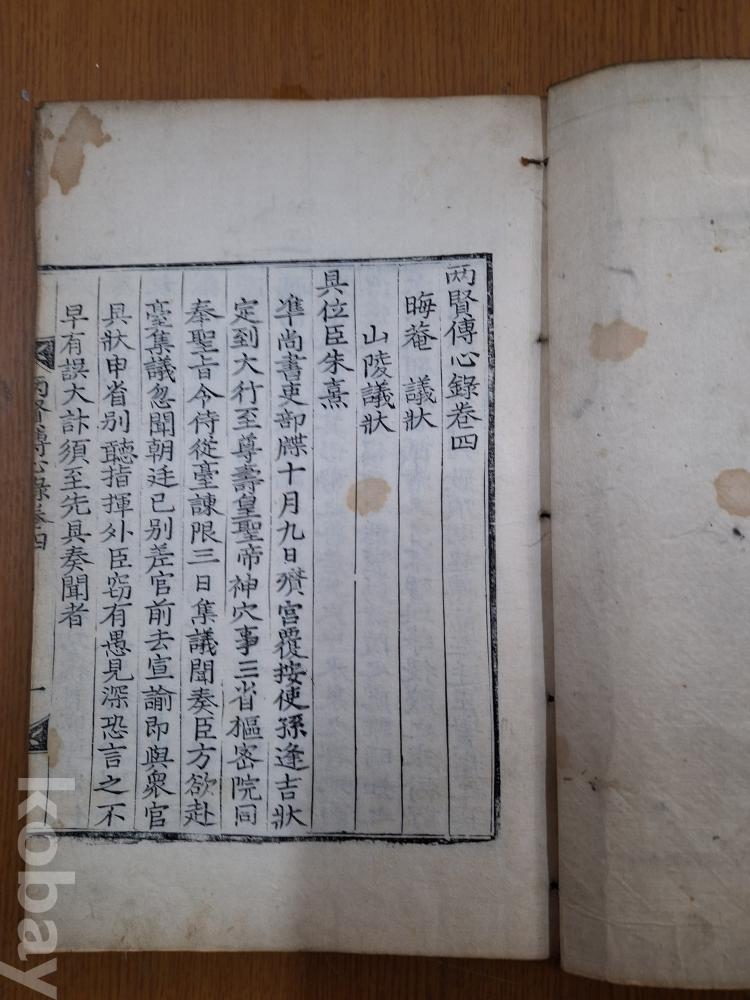 两賢傳心錄卷四
晦菴 議狀
山陵議狀
具位臣朱熹
準尚書吏部牒十月九日殯宮覆按使孫逢吉狀
定到大行至尊壽皇聖帝神穴事三省樞密院同
奉聖旨今侍從臺諫限三日集議聞奏臣方欲赴
臺集議忽聞朝廷已別差官前去宣諭即與眾官
具狀申省別聽指揮外臣窃有愚見深恐言之不
早有誤大計須至先具奏聞者
两賢傳心錄卷四
一
kobay